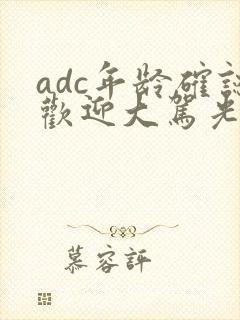 adc年齡確認
歡迎大駕光
慕容評